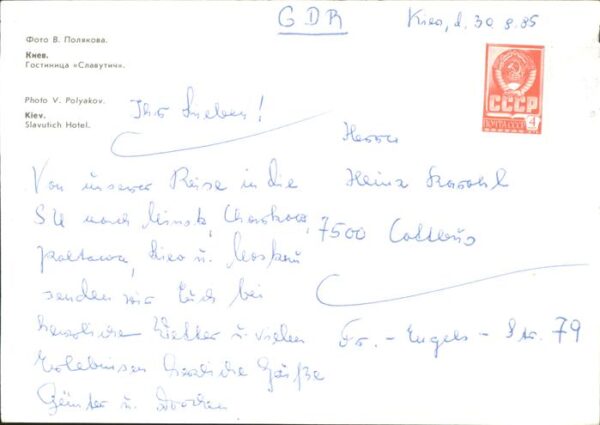 GDR
Kiew, d. 30.8.85
Фото В. Полякова.
Киев.
Гостиница «Славутич».
Photo V. Polyakov.
Kiev.
Slavutich Hotel.
СССР
4
Ihr Lieben!
Von unserer Reise in die
SU nach Minsk, Charkow,
Poltawa, Kiew u. Moskau
senden wir Euch bei
herrlichem Wetter u. vielen
Erlebnissen herzliche Grüße
Günter u.
Herrn
Heinz
7500 Cottbus
Fr. - Engels - Str. 79